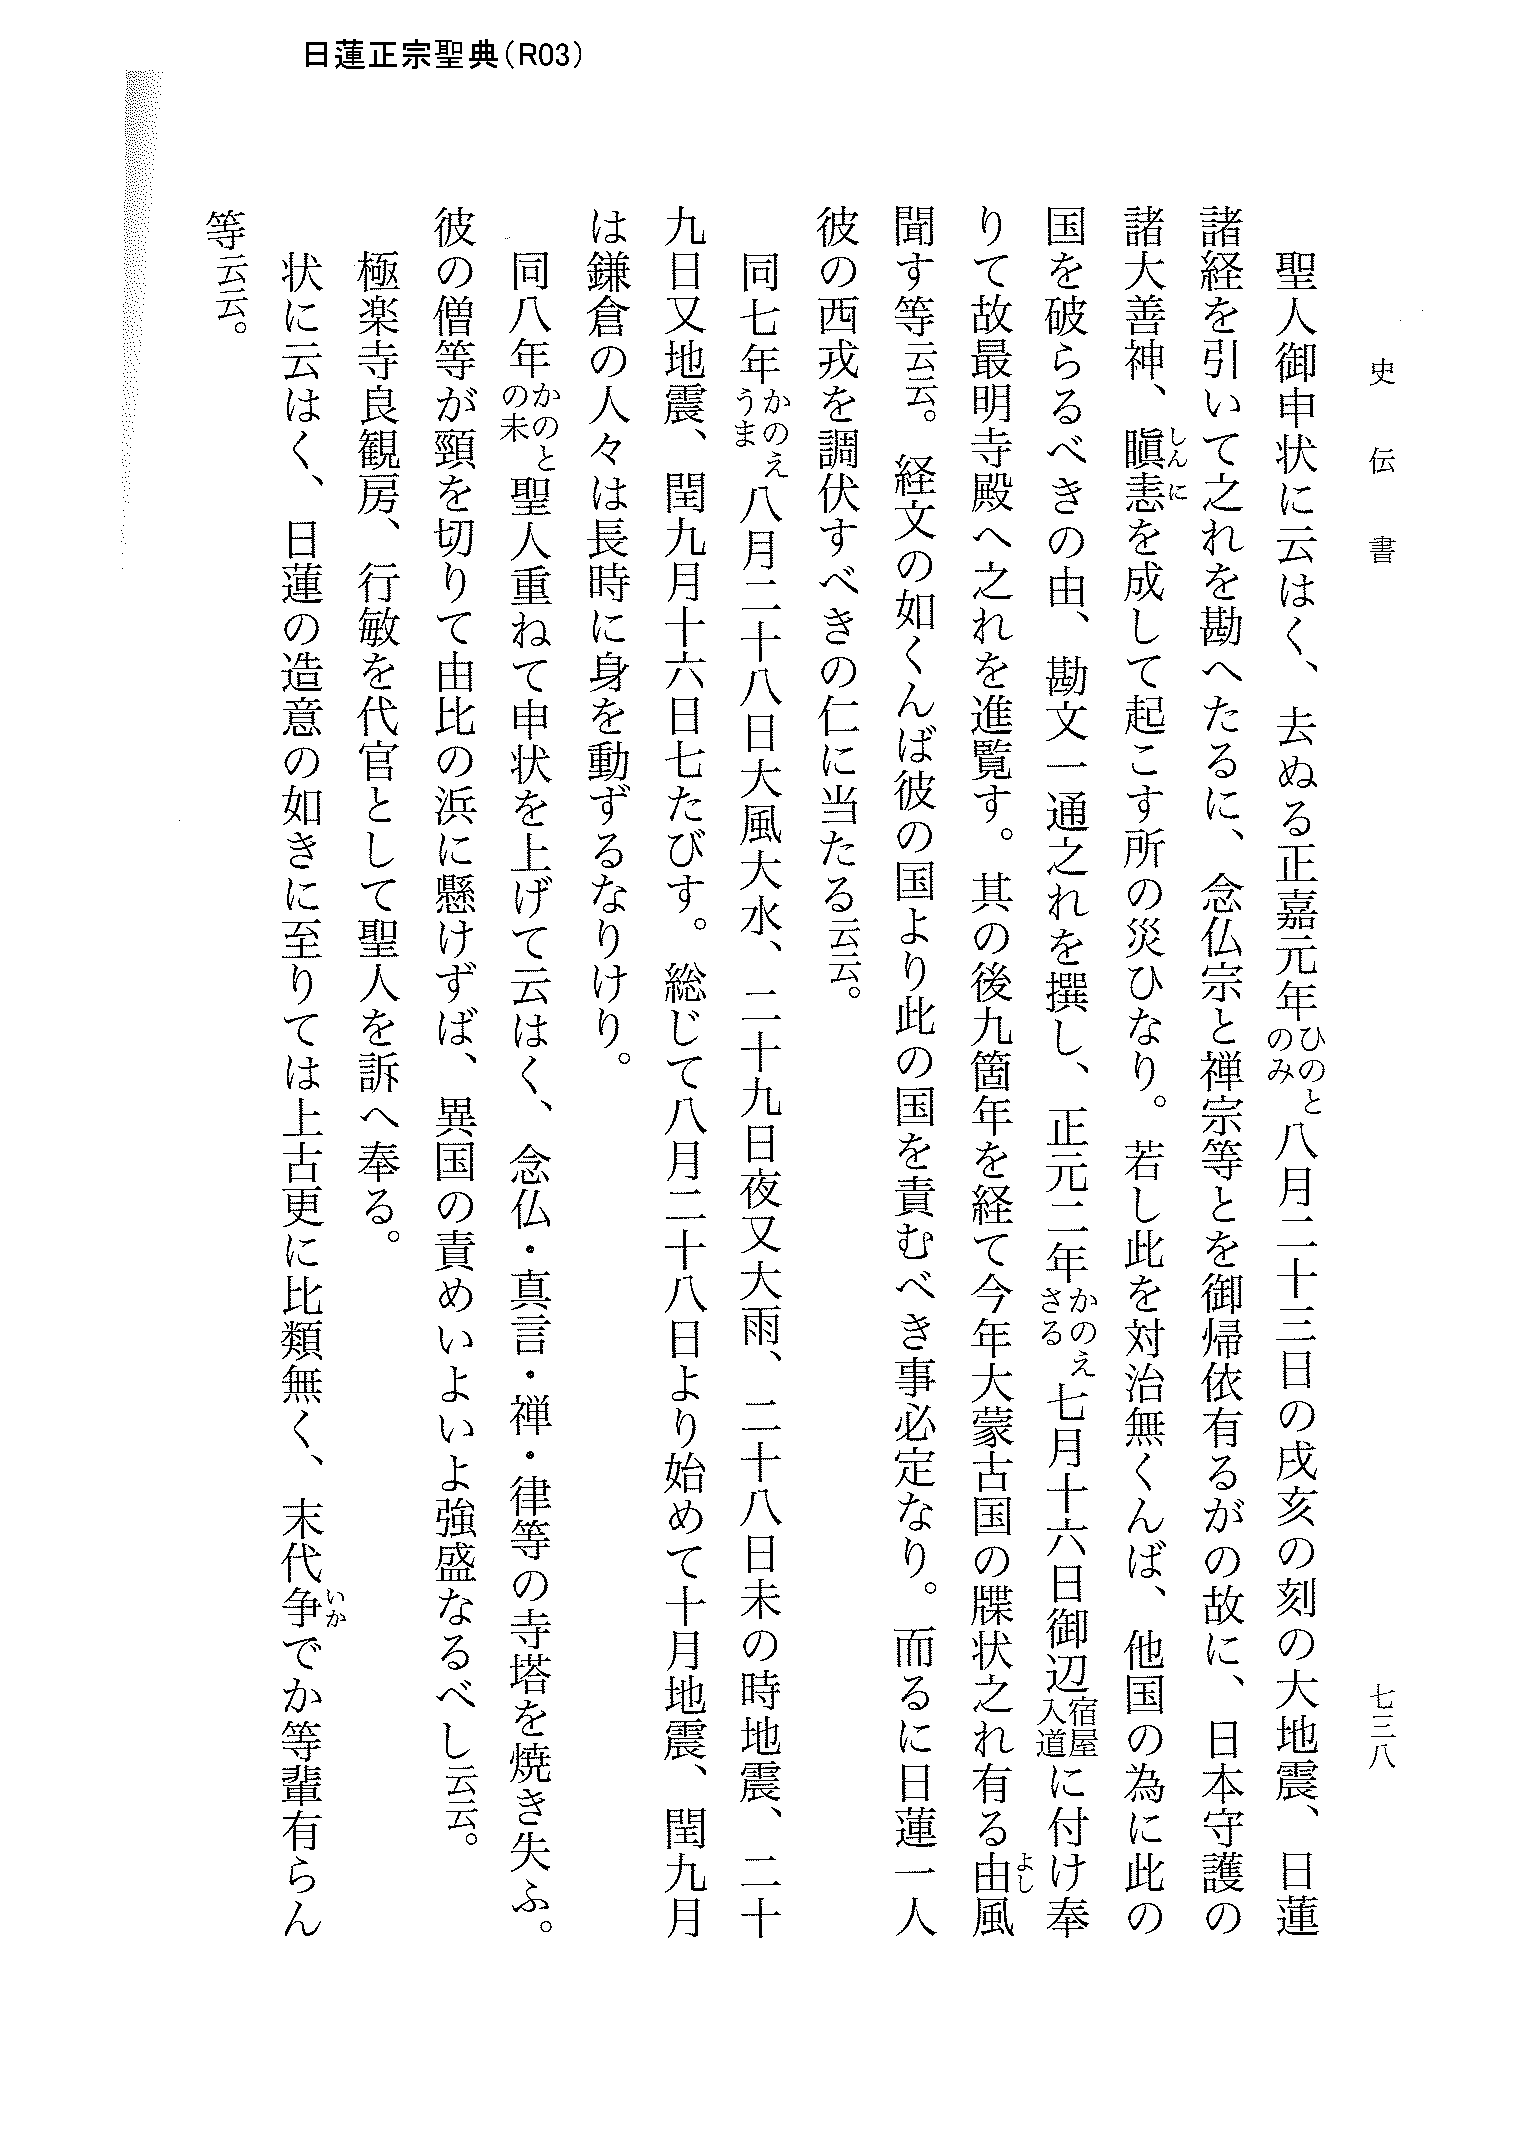 日蓮正宗聖典（R03）
史伝書
七三八
聖人御申状に云はく、去ぬる正嘉元年ひのとのみ八月二十三日の戌亥の刻の大地震、日蓮
諸経を引いて之れを勘へたるに、念仏宗と禅宗等とを御帰依有るがの故に、日本守護の
諸大善神、瞋恚しんにを成して起こす所の災ひなり。若し此を対治無くんば、他国の為に此の
国を破らるべきの由、勘文一通之れを撰し、正元二年かのえさる七月十六日御辺宿屋入道に付け奉
りて故最明寺殿へ之れを進覧す。其の後九箇年を経て今年大蒙古国の牒状之れ有る由よし風
聞す等云云。経文の如くんば彼の国より此の国を責むべき事必定なり。而るに日蓮一人
彼の西戎を調伏すべきの仁に当たる云云。
同七年かのえうま八月二十八日大風大水、二十九日夜又大雨、二十八日未の時地震、二十
九日又地震、閏九月十六日七たびす。総じて八月二十八日より始めて十月地震、閏九月
は鎌倉の人々は長時に身を動ずるなりけり。
同八年かのとの未聖人重ねて申状を上げて云はく、念仏・真言・禅・律等の寺塔を焼き失ふ。
彼の僧等が頸を切りて由比の浜に懸けずば、異国の責めいよいよ強盛なるべし云云。
極楽寺良観房、行敏を代官として聖人を訴へ奉る。
状に云はく、日蓮の造意の如きに至りては上古更に比類無く、末代争いかでか等輩有らん
等云云。